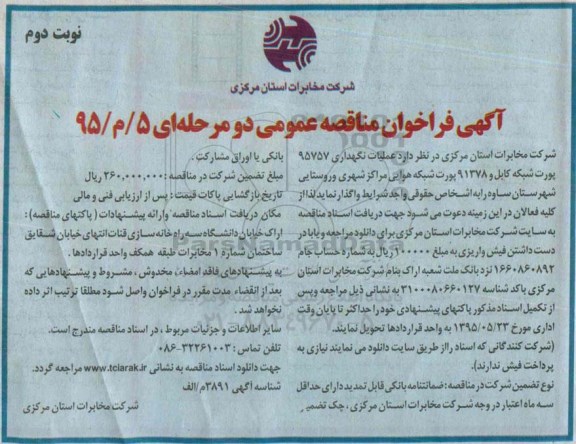 نوبت دوم
شرکت مخابرات استان مرکزی
آگهی فراخوان مناقصه عمومی دو مرحله‌ای ۵/م/۹۵
شرکت مخابرات استان مرکزی در نظر دارد عملیات نگهداری ۹۵۷۵۷
پورت شبکه کابل و ۹۱۳۷۸ پورت شبکه هوایی مراکز شهری و روستایی
شهرستان ساوه را به اشخاص حقوقی واجد شرایط واگذار نماید لذا از
کلیه فعالان در این زمینه دعوت می شود جهت دریافت اسناد مناقصه
به سایت شرکت مخابرات استان مرکزی برای دانلود مراجعه و یا با در
دست داشتن فیش واریزی به مبلغ ۱۰۰۰۰۰ ریال به شماره حساب جام
۱۶۶۰۸۶۰۸۹۲ نزد بانک ملت شعبه اراک بنام شرکت مخابرات استان
مرکزی با کد شناسه ۳۱۰۰۰۸۰۶۶۰۱۲۷ به نشانی ذیل مراجعه و پس
از تکمیل اسناد مذکور پاکتهای پیشنهادی خود را حداکثر تا پایان وقت
اداری مورخ ۱۳۹۵/۰۵/۲۳ به واحد قراردادها تحویل نمایند.
(شرکت کنندگانی که اسناد را از طریق سایت دانلود می نمایند نیازی به
پرداخت فیش ندارند).
نوع تضمین شرکت در مناقصه : ضمانتنامه بانکی قابل تمدید دارای حداقل
سه ماه اعتبار در وجه شرکت مخابرات استان مرکزی ، چک تضمین
بانکی یا اوراق مشارکت .
مبلغ تضمین شرکت در مناقصه : ۲۶۰,۰۰۰,۰۰۰ ریال
تاریخ بازگشایی پاکات قیمت : پس از ارزیابی فنی و مالی
مکان دریافت اسناد مناقصه وارائه پیشنهادات ( پاکتهای مناقصه) :
اراک خیابان دانشگاه سه راه خانه سازی قنات انتهای خیابان شقایق
ساختمان شماره ۱ مخابرات طبقه همکف واحد قراردادها .
به پیشنهادهای فاقد امضاء، مخدوش ، مشروط و پیشنهادهایی که
بعد از انقضاء مدت مقرر در فراخوان واصل شود مطلقا ترتیب اثر داده
نخواهد شد .
سایر اطلاعات و جزئیات مربوط ، در اسناد مناقصه مندرج است.
تلفن تماس : ۳۲۲۶۱۰۰۳-۰۸۶
جهت دانلود اسناد مناقصه به نشانی www.tciarak.ir مراجعه گردد.
شناسه آگهی ۳۸۹۱م/الف
شرکت مخابرات استان مرکزی
ParsNamadData